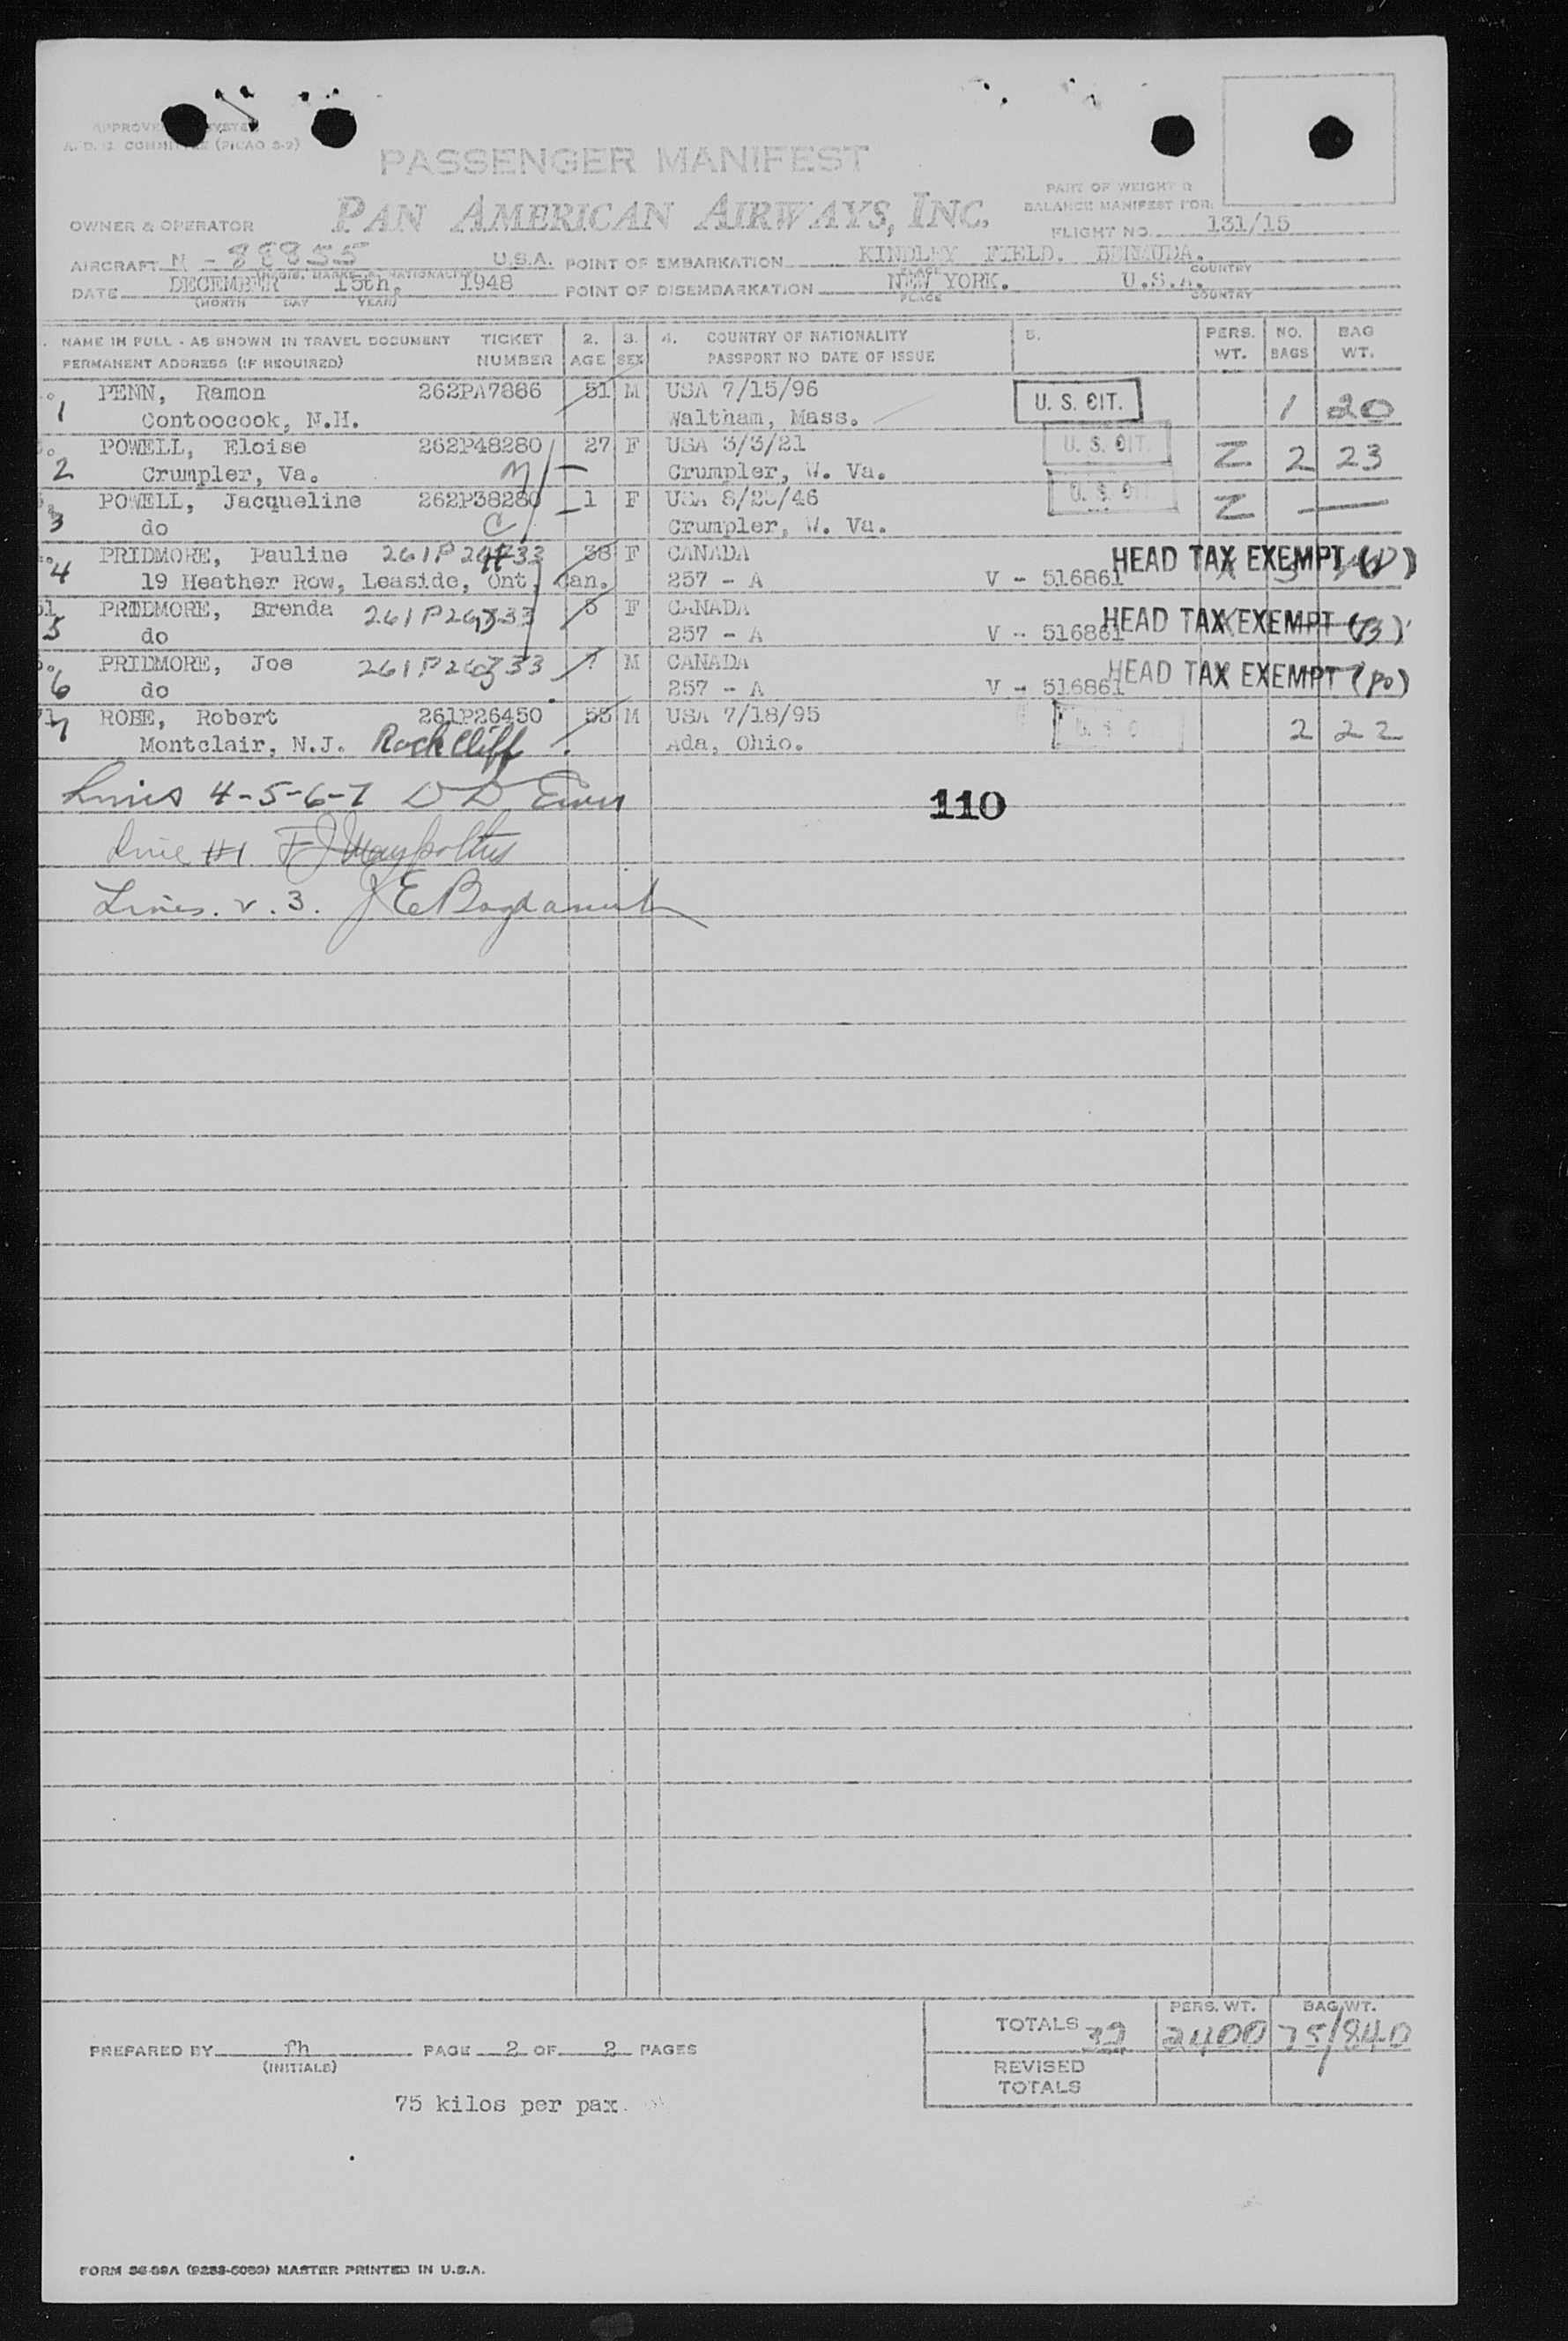 PASSENGER MANIFEST
A. D. C. COMMITTEE (PICAO S-2)
PART OF WEIGHT &
BALANCE MANIFEST FOR:
OWNER & OPERATOR PAN AMERICAN AIRWAYS, INC. FLIGHT NO. 131/15
AIRCRAFT N - 88855 U.S.A. POINT OF EMBARKATION KINDLEY FIELD. BERMUDA.
PLACE COUNTRY
DATE DECEMBER 15th, 1948 POINT OF DISEMBARKATION NEW YORK. U.S.A.
(MONTH DAY YEAR) PLACE COUNTRY
NAME IN FULL - AS SHOWN IN TRAVEL DOCUMENT TICKET 2. 3. 4. COUNTRY OF NATIONALITY 5. PERS. NO. BAG
PERMANENT ADDRESS (IF REQUIRED) NUMBER AGE SEX PASSPORT NO DATE OF ISSUE WT. BAGS WT.
PENN, Ramon 262PA7886 51 M USA 7/15/96 U. S. CIT.
1 Contoocook, N.H. Waltham, Mass. 1 20
POWELL, Eloise 262P48280 27 F USA 3/3/21 U. S. CIT.
2 Crumpler, Va. M Crumpler, W. Va. Z 2 23
POWELL, Jacqueline 262P38280 1 F USA 8/2 /46 U. S. CIT
3 do C Crumpler, W. Va. Z —
PRIDMORE, Pauline 261P26733 38 F CANADA HEAD TAX EXEMPT
4 19 Heather Row, Leaside, Ont. Can. 257 - A V - 516861
PRIDMORE, Brenda 261P26733 5 F CANADA HEAD TAX EXEMPT
5 do 257 - A V - 516861
PRIDMORE, Joe 261P26733 7 M CANADA HEAD TAX EXEMPT
6 do 257 - A V - 516861
ROBE, Robert 261P26450 53 M USA 7/18/95
7 Montclair, N.J. Rockcliff Ada, Ohio. 2 22
Lines 4-5-6-7 D D
110
Line #1
Lines. 2. 3. J E
TOTALS 32 PERS. WT. 2400 BAG WT. 75/840
PREPARED BY fh PAGE 2 OF 2 PAGES
(INITIALS)
REVISED
TOTALS
75 kilos per pax.
FORM (9253-6053) MASTER PRINTED IN U.S.A.